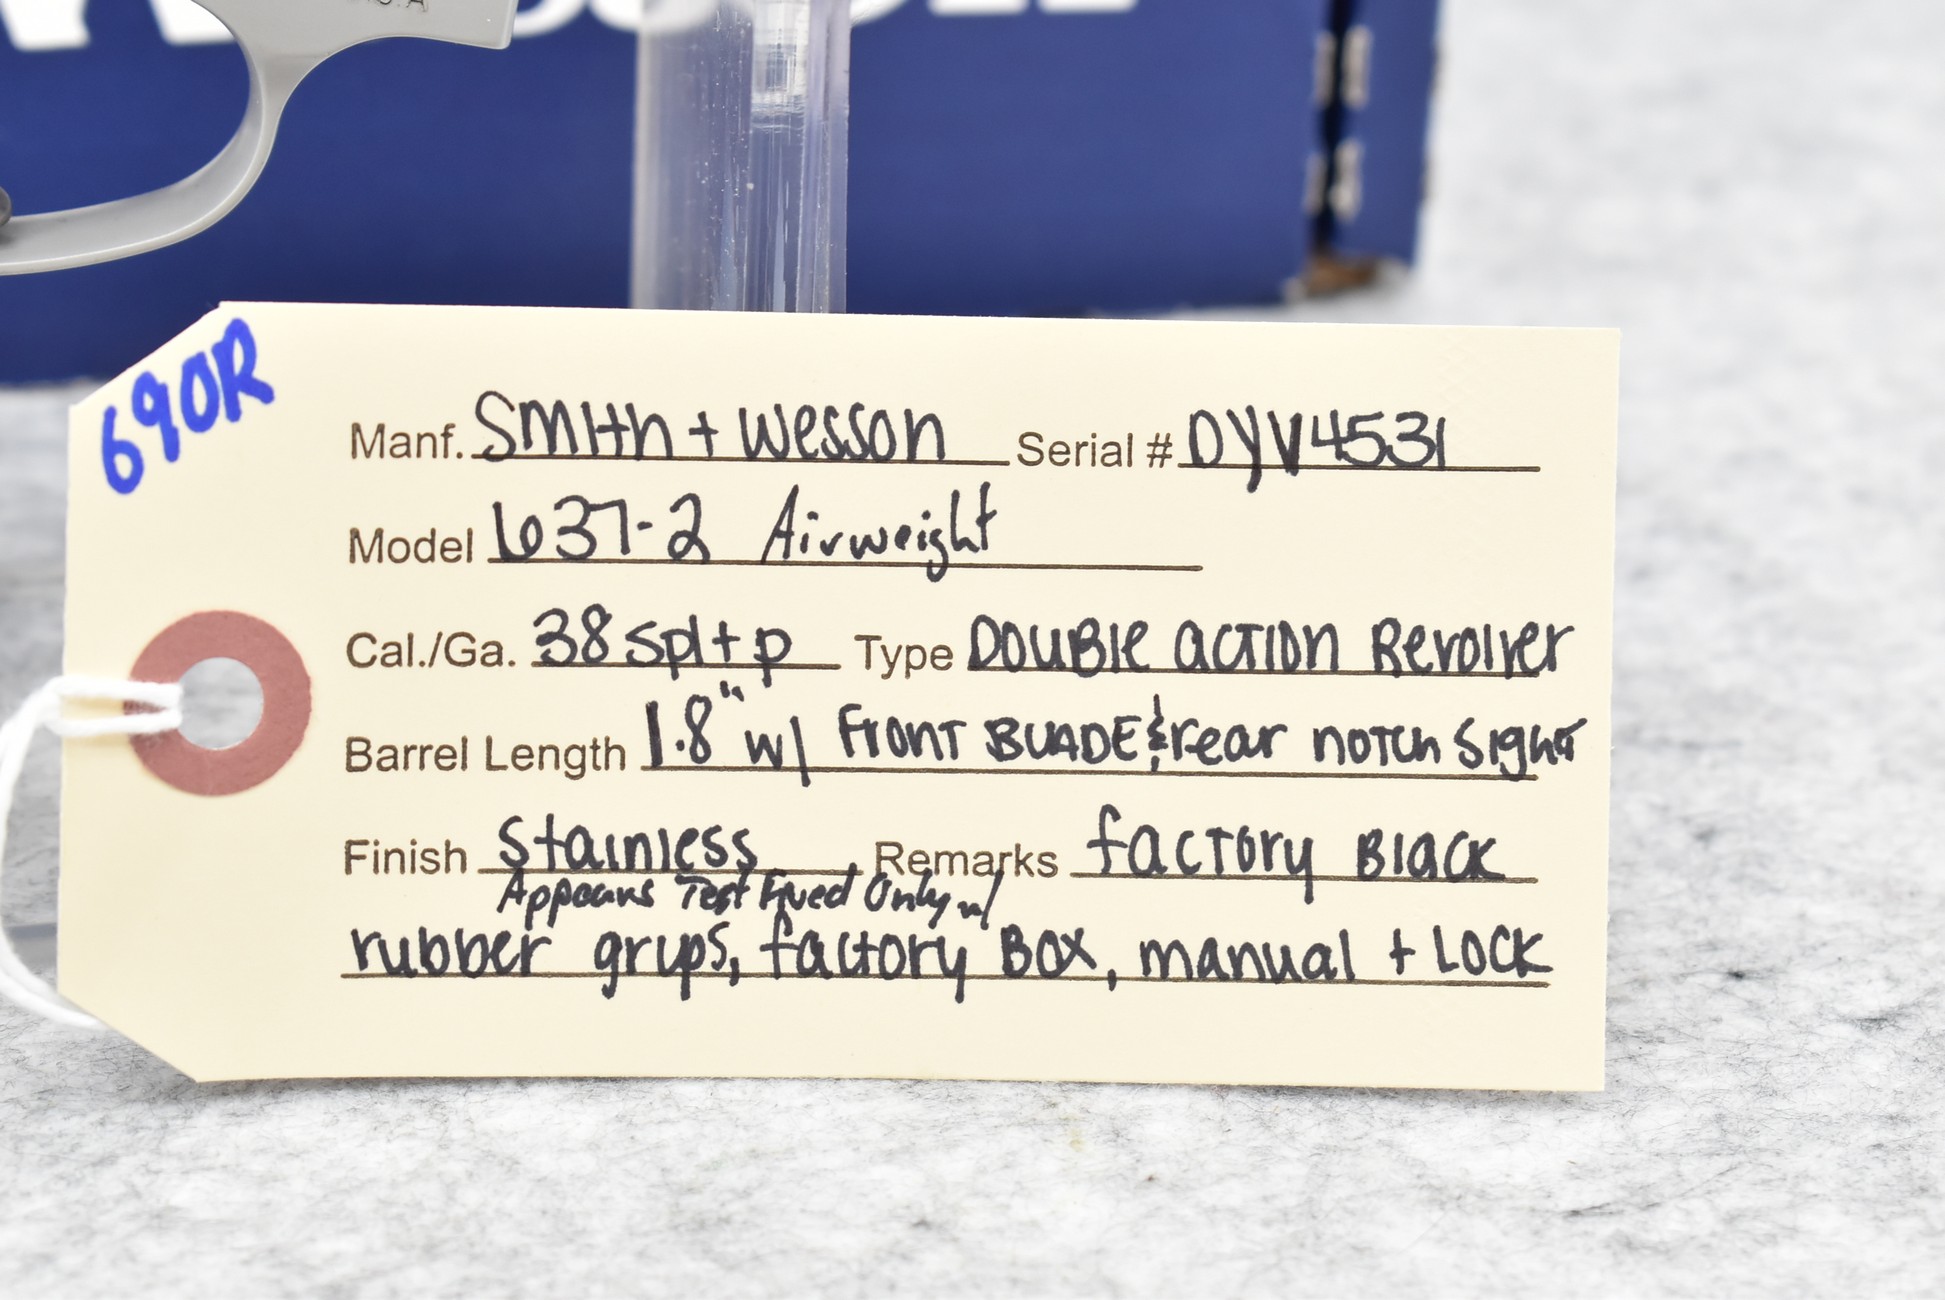 690R
Manf. Smith + Wesson Serial # DYV4531
Model 637-2 Airweight
Cal./Ga. 38 spl + p Type Double Action Revolver
Barrel Length 1.8" w/ Front BLADE & rear notch Sight
Finish Stainless Remarks factory Black
Appears Test Fired Only w/
rubber grips, factory Box, manual + Lock